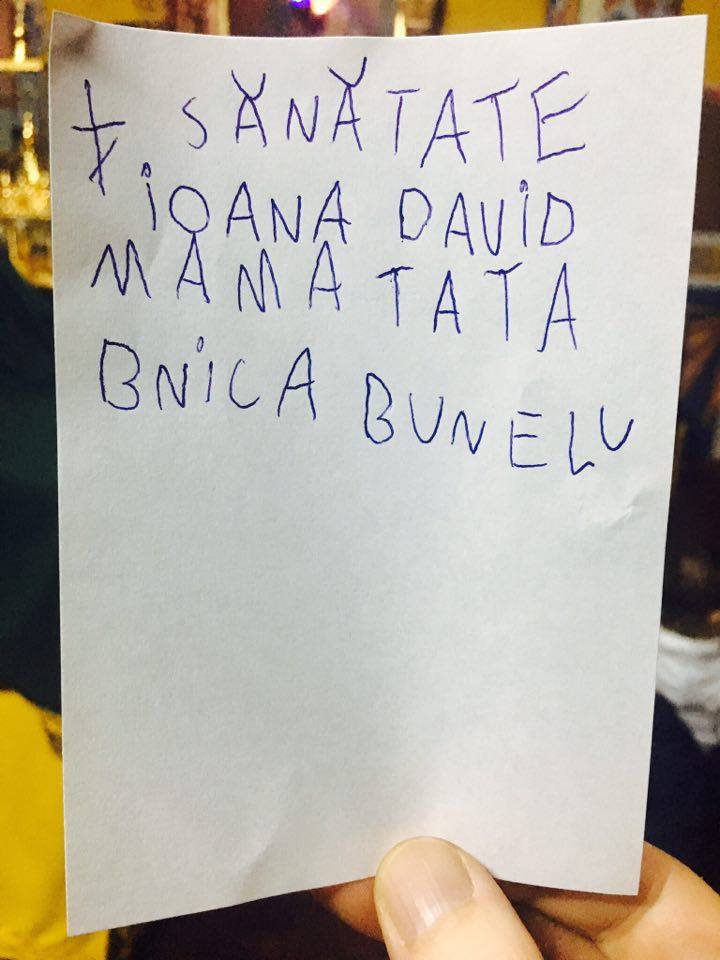 † SĂNĂTATE
iOANA DAViD
MAMA TATA
BNiCA BUNELU